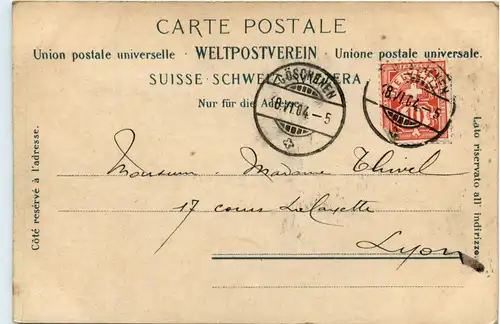 CARTE POSTALE
Union postale universelle · WELTPOSTVEREIN · Unione postale universale.
SUISSE · SCHWEIZ ERA
Nur für die Adresse
GÖSCHENEN
18.VI.04 – 5
GÖSCHENEN
18.VI.04 – 5
10
Côté réservé à l'adresse.
Lato riservato all' indirizzo.
Monsieur - Madame
17 cours Lafayette
Lyon